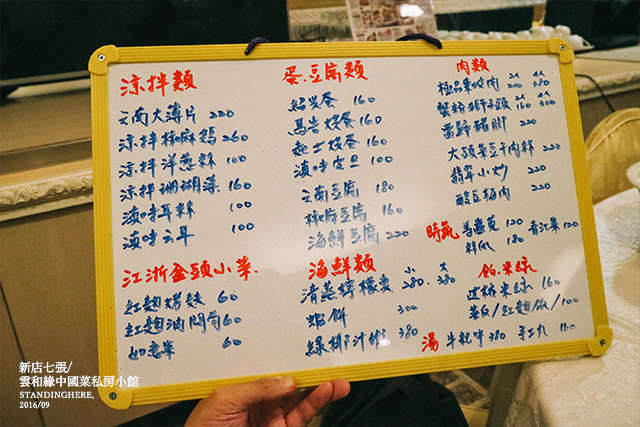 涼拌類
雲南大薄片 220
涼拌椒麻鷄 260
涼拌洋蔥絲 100
涼拌珊瑚藻 160
滇味耳絲 100
滇味雲耳 100
江浙盆頭小菜.
紅麴烤麩 60
紅麴油悶筍 60
如意菜 60
蛋.豆腐類
紹興蛋 160
馬告烘蛋 160
起士烘蛋 160
滇味皮旦 100
雲南豆腐 180
椒麻豆腐 160
海鮮豆腐 220
海鮮類
小 大
清蒸檸檬魚 280. 380
蝦餅 300
綠椰汁蝦 380
肉類
小 大
極品東坡肉 200 380
小 大
蟹粉獅子頭 160 300
滷豬腳 220
大頭菜豆干肉絲 220
翡翠小炒 220
酸豆梅肉 220
時蔬
馬蘭頭 120 青江菜 120
絲瓜 180
飯.米線
過橋米線 160
蛋白/紅麴飯/100
湯 牛乾味 380 手工丸 160
新店七張/
雲和緣中國菜私房小館
STANDINGHERE,
2016/09